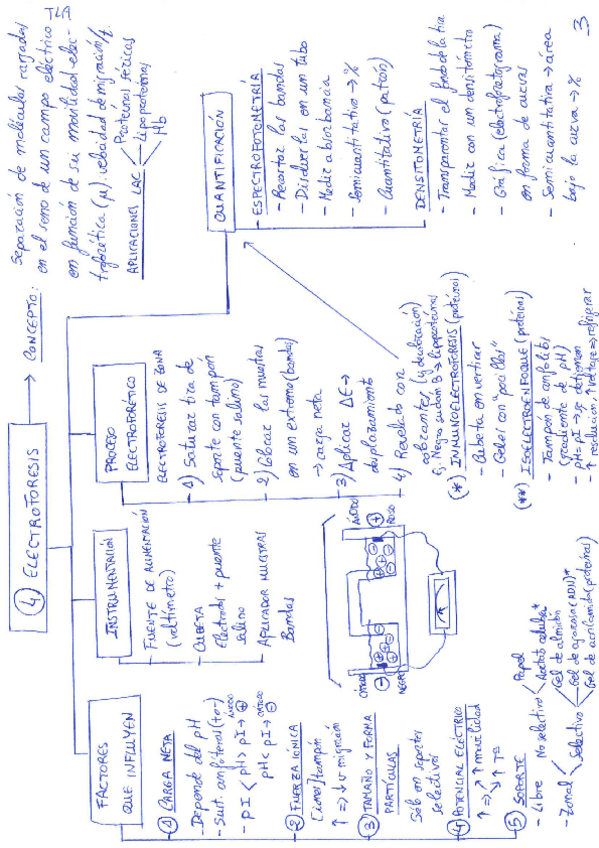 TLA
4 ELECTROFORESIS → CONCEPTO:
Separación de moléculas cargadas
en el seno de un campo eléctrico
en función de su movilidad elec-
troforética (μ): velocidad de migración/t.
APLICACIONES LAC
Proteínas séricas
Lipoproteínas
Hb
FACTORES
QUE INFLUYEN
1 CARGA NETA
- Depende del pH
- Sust. anfóteras (to-)
- pI
pH > pI → ⊖ ÁNODO ⊕
pH < pI → ⊕ CÁTODO ⊖
2 FUERZA IÓNICA
[iones] tampón
↑ ⇒ ↓ v migración
3 TAMAÑO Y FORMA
PARTÍCULAS
Sólo en soportes
selectivos
4 POTENCIAL ELÉCTRICO
↑ ⇒ ↑ movilidad
↑ Tª
5 SOPORTE
- Libre
- Zonal
No selectivo
Papel
Acetato celulosa*
Selectivo
Gel de almidón
Gel de agarosa (ADN)*
Gel de acrilamida (proteínas)
INSTRUMENTACIÓN
- FUENTE DE ALIMENTACIÓN
(voltímetro)
- CUBETA
Electrodos + puente
salino
- APLICADOR MUESTRAS
Bandas
CÁTODO
NEGRO
ÁNODO
ROJO
PROCESO
ELECTROFORÉTICO
ELECTROFORESIS DE ZONA
1) Saturar tira de
soporte con tampón
(puente salino)
2) Colocar las muestras
en un extremo (bandas)
→ carga neta
3) Aplicar ΔE →
desplazamiento
4) Revelado con
colorantes (y decoloración)
Ej. Negro sudán B → lipoproteínas
(*) INMUNOELECTROFORESIS (proteínas)
- Cubeta en vertical
- Geles con "pocillos"
(**) ISOELECTROENFOQUE (proteínas)
- Tampón de anfolitos
(gradiente de pH)
- pH = pI → se detienen
- ↑ resolución, ↑ voltaje ⇒ refrigerar
CUANTIFICACIÓN
- ESPECTROFOTOMETRÍA
- Recortar las bandas
- Diluirlas en un tubo
- Medir absorbancia
- Semicuantitativo → %
- Cuantitativo (patrón)
DENSITOMETRÍA
- Transparentar el fondo de la tira
- Medir con un densitómetro
- Gráfica (electroforetograma)
en forma de curvas
- Semicuantitativa → área
bajo la curva → %
3